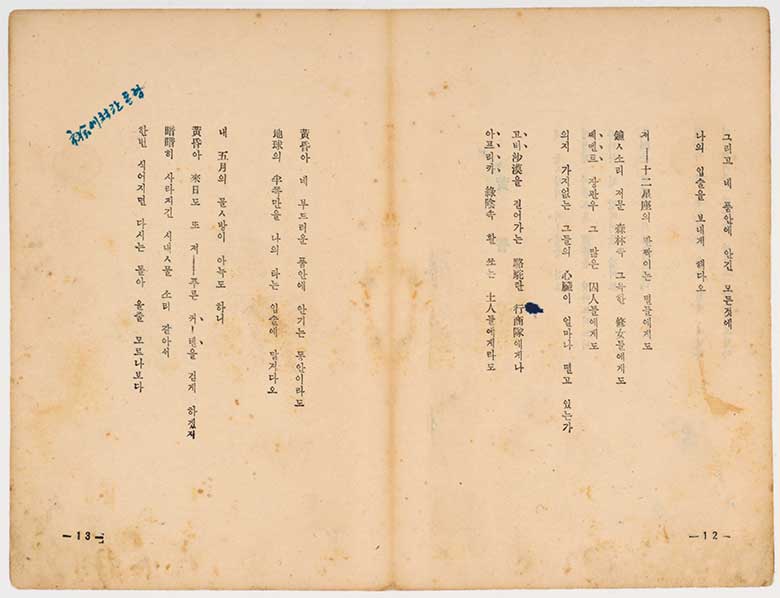 그리고 네 품안에 안긴 모든것에
나의 입술을 보내게 해다오
저──十二星座의 반짝이는 별들에게도
鐘ㅅ소리 저문 森林속 그윽한 修女들에게도
쎄멘트 장판우 그 많은 囚人들에게도
의지 가지없는 그들의 心臟이 얼마나 떨고 있는가
고비沙漠을 걸어가는 駱駝탄 行商隊에게나
아프리카 綠陰속 활 쏘는 土人들에게라도
—12—
黃昏아 네 부드러운 품안에 안기는 동안이라도
地球의 半쪽만을 나의 타는 입술에 맡겨다오
내 五月의 골ㅅ방이 아늑도 하니
黃昏아 來日도 또 저──푸른 커ー텐을 걷게 하겠지
暗暗히 사라지긴 시내ㅅ물 소리 같아서
한번 식어지면 다시는 돌아 올줄 모르나보다
—13—